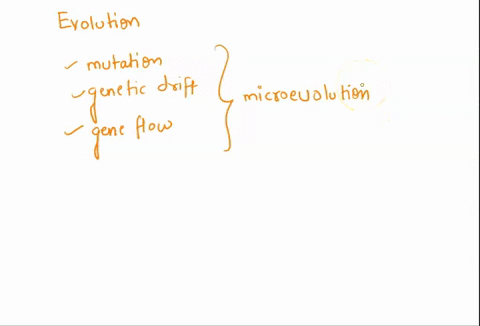 Evolution
mutation
genetic drift
gene flow
microevolution